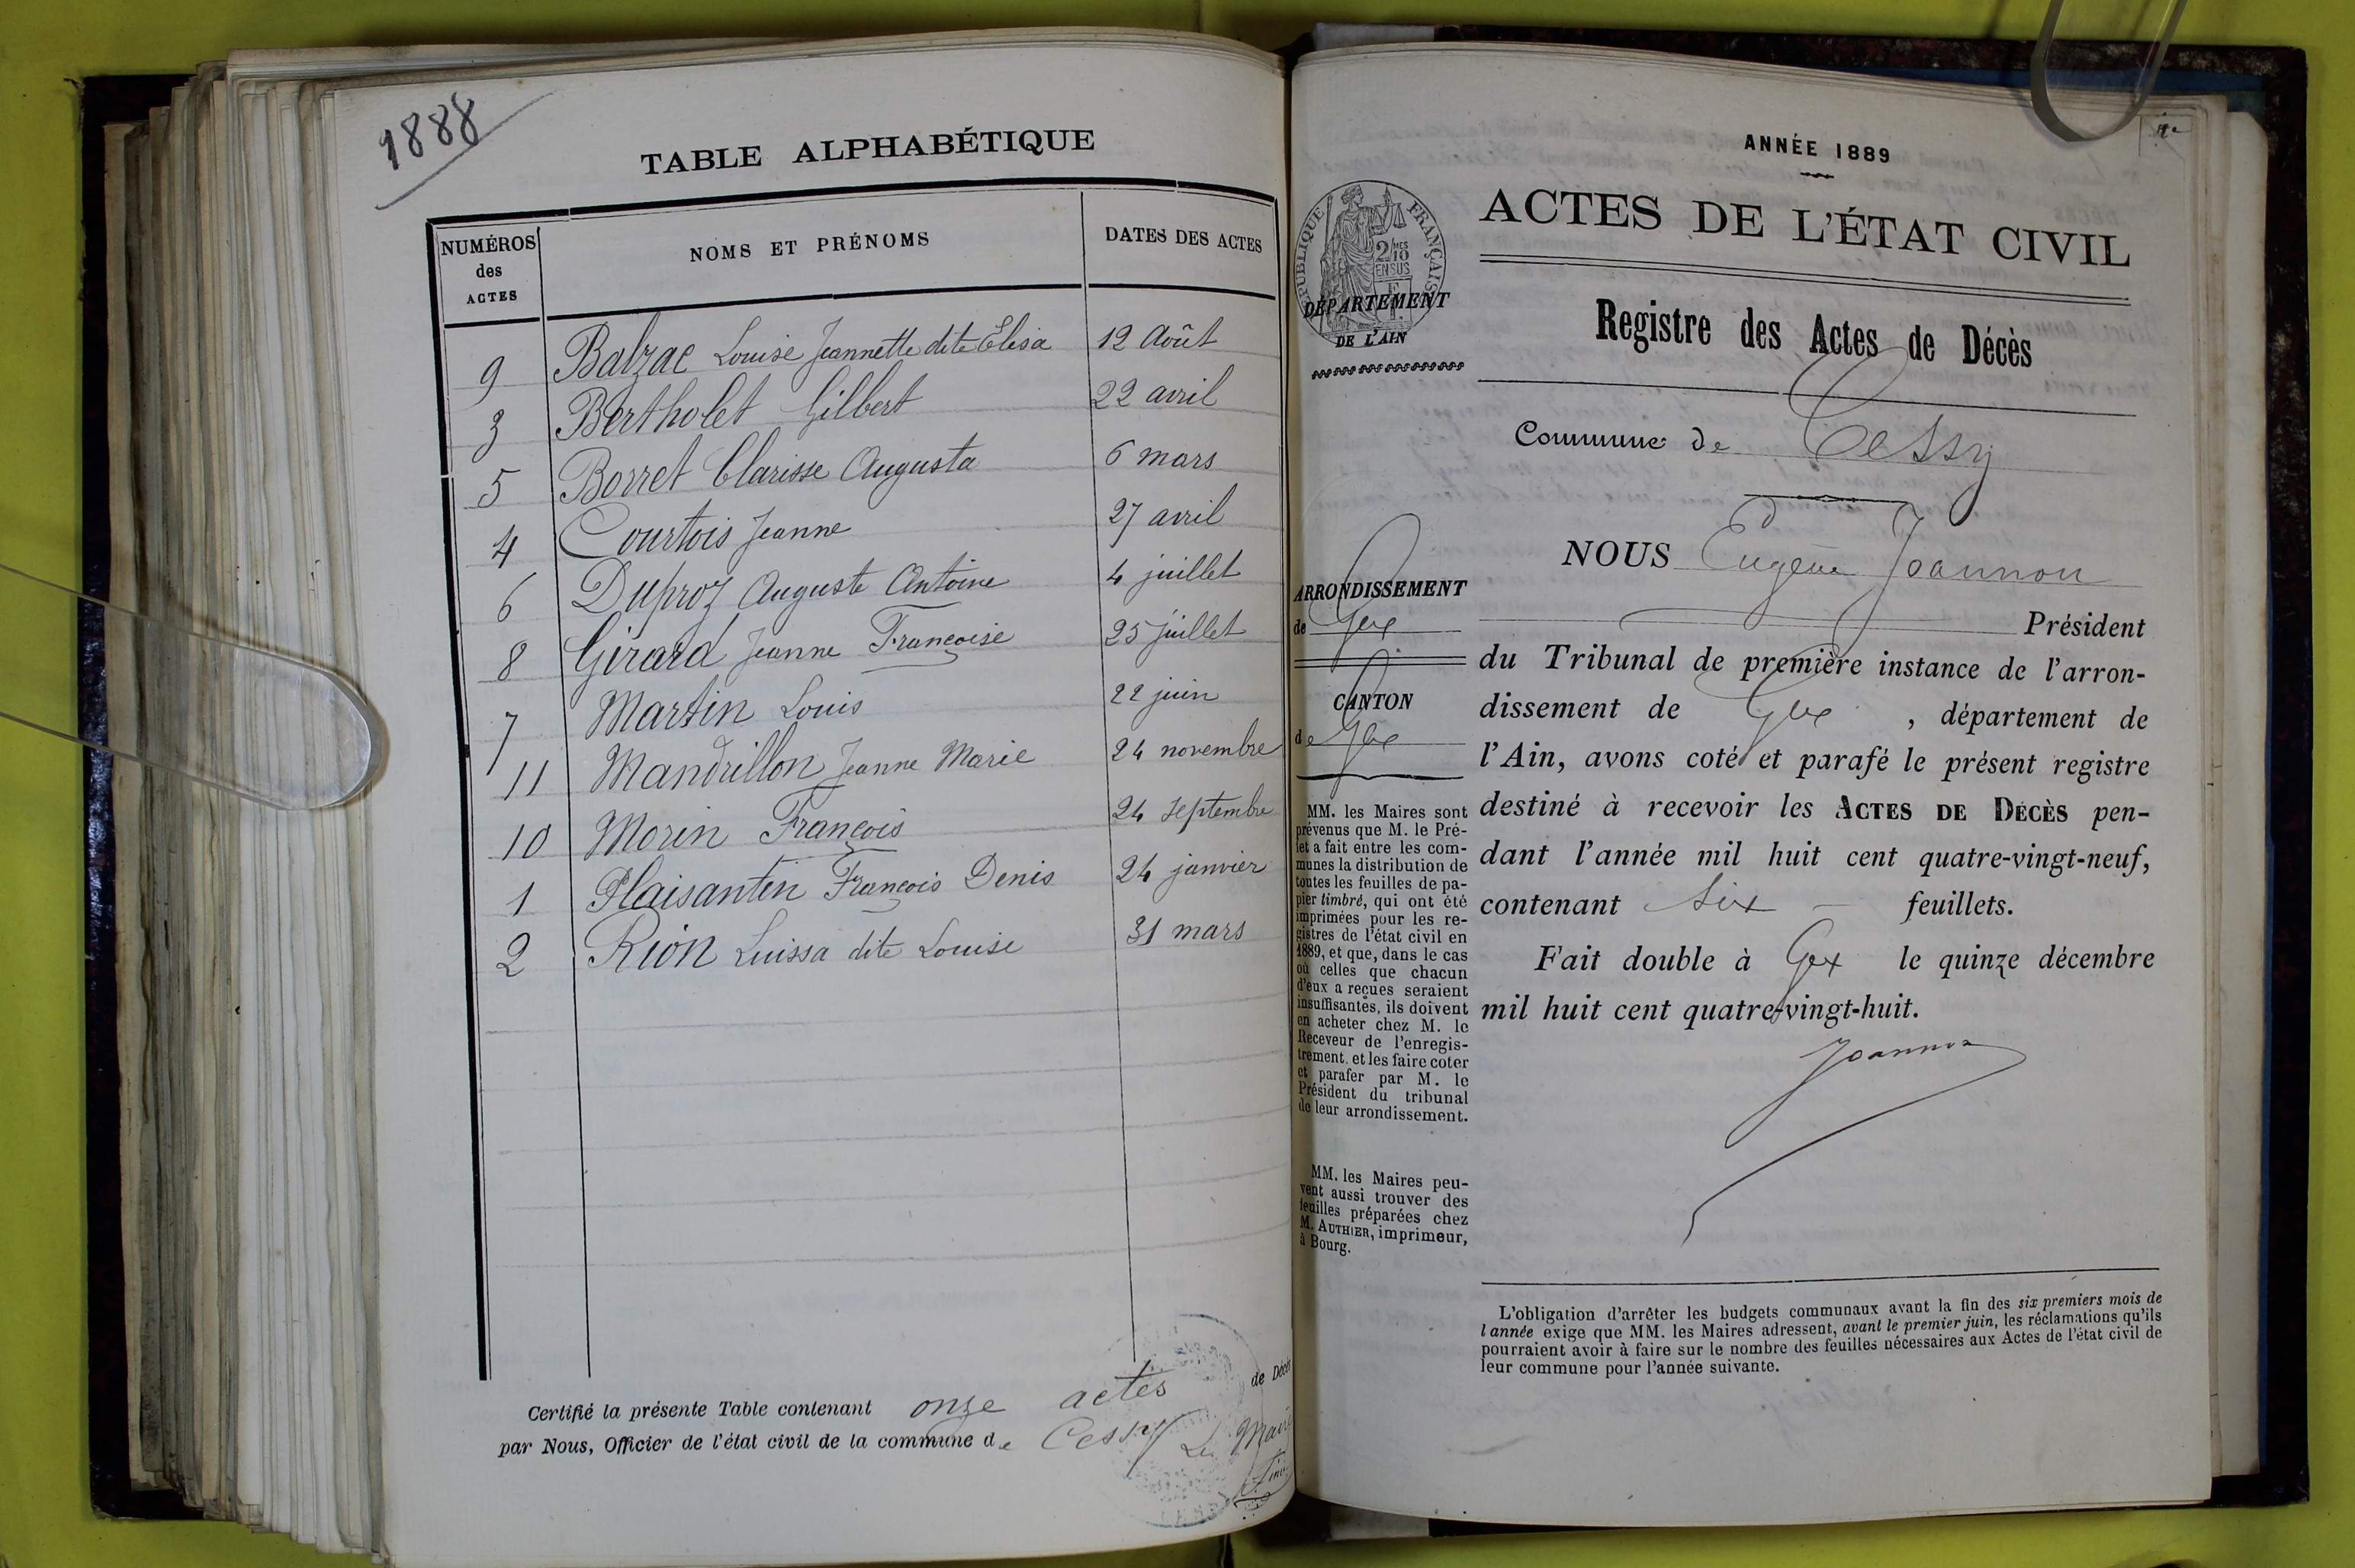 1888
TABLE ALPHABÉTIQUE
NUMÉROS des ACTES NOMS ET PRÉNOMS DATES DES ACTES
9 Balzac Louise Jeannette dite Elisa 12 Août
3 Bertholet Gilbert 22 avril
5 Borret Clarisse Augusta 6 mars
4 Courtois Jeanne 27 avril
6 Duproz Auguste Antoine 4 juillet
8 Girard Jeanne Françoise 25 juillet
7 Martin Louis 22 juin
11 Mandrillon Jeanne Marie 24 novembre
10 Morin François 24 septembre
1 Plaisantin François Denis 24 janvier
2 Rion Luissa dite Louise 31 mars
Certifié la présente Table contenant onze actes de Décès
par Nous, Officier de l'état civil de la commune de Cessy Le Maire
ANNÉE 1889
ACTES DE L'ÉTAT CIVIL
RÉPUBLIQUE FRANÇAISE
DÉPARTEMENT
DE L'AIN
Registre des Actes de Décès
Commune de Cessy
ARRONDISSEMENT
de Gex
CANTON
de Gex
MM. les Maires sont
prévenus que M. le Pré-
fet a fait entre les com-
munes la distribution de
toutes les feuilles de pa-
pier timbré, qui ont été
imprimées pour les re-
gistres de l'état civil en
1889, et que, dans le cas
où celles que chacun
d'eux a reçues seraient
insuffisantes, ils doivent
en acheter chez M. le
Receveur de l'enregis-
trement, et les faire coter
et parafer par M. le
Président du tribunal
de leur arrondissement.
MM. les Maires peu-
vent aussi trouver des
feuilles préparées chez
M. AUTHIER, imprimeur,
à Bourg.
NOUS Eugène Joannon
Président
du Tribunal de première instance de l'arron-
dissement de Gex , département de
l'Ain, avons coté et parafé le présent registre
destiné à recevoir les ACTES DE DÉCÈS pen-
dant l'année mil huit cent quatre-vingt-neuf,
contenant six feuillets.
Fait double à Gex le quinze décembre
mil huit cent quatre-vingt-huit.
Joannon
L'obligation d'arrêter les budgets communaux avant la fin des six premiers mois de
l'année exige que MM. les Maires adressent, avant le premier juin, les réclamations qu'ils
pourraient avoir à faire sur le nombre des feuilles nécessaires aux Actes de l'état civil de
leur commune pour l'année suivante.